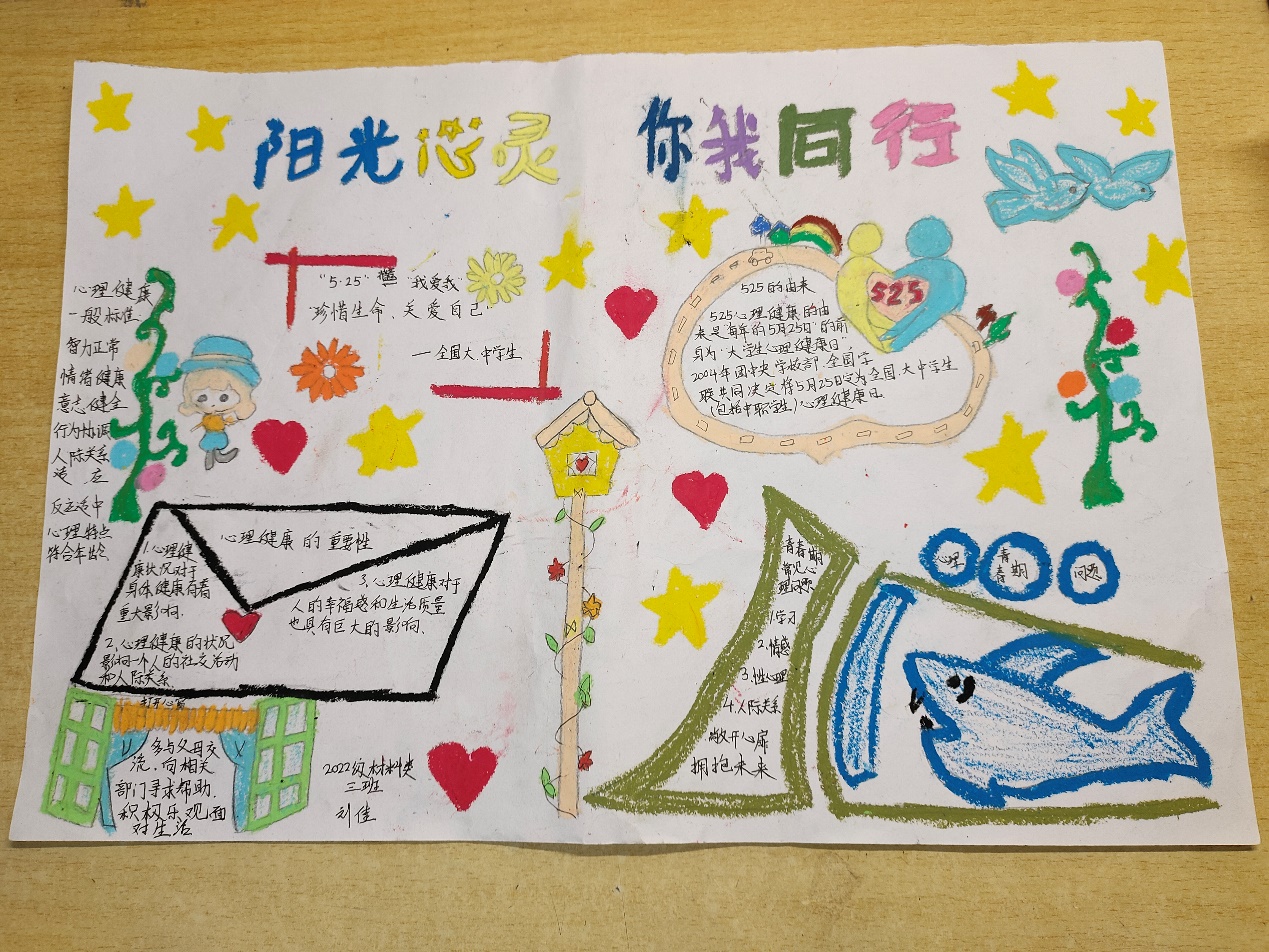 阳光心灵 你我同行
心理健康
一般标准
智力正常
情绪健康
意志健全
行为协调
人际关系
适应
反应适中
心理特点
符合年龄
“5·25” “我爱我”
“珍惜生命、关爱自己”
— 全国大、中学生
525的由来
525心理健康的由
来是“每年的5月25日”的前
身为“大学生心理健康日”,
2004年团中央学校部、全国学
联共同决定将5月25日定为全国大中学生
(包括中职学生)心理健康日
525
心理健康的重要性
1.心理健
康状况对于
身体健康有着
重大影响.
2.心理健康的状况
影响一个人的社交活动
和人际关系
3.心理健康对于
人的幸福感和生活质量
也具有巨大的影响、
打开心窗
多与父母交
流,向相关
部门寻求帮助.
积极乐观面
对生活
2022级材料类
三班
刘佳
青春期
常见心
理问题
1.学习
2.情感
3.性心理
4.人际关系
敞开心扉
拥抱未来
心理
青春期
问题